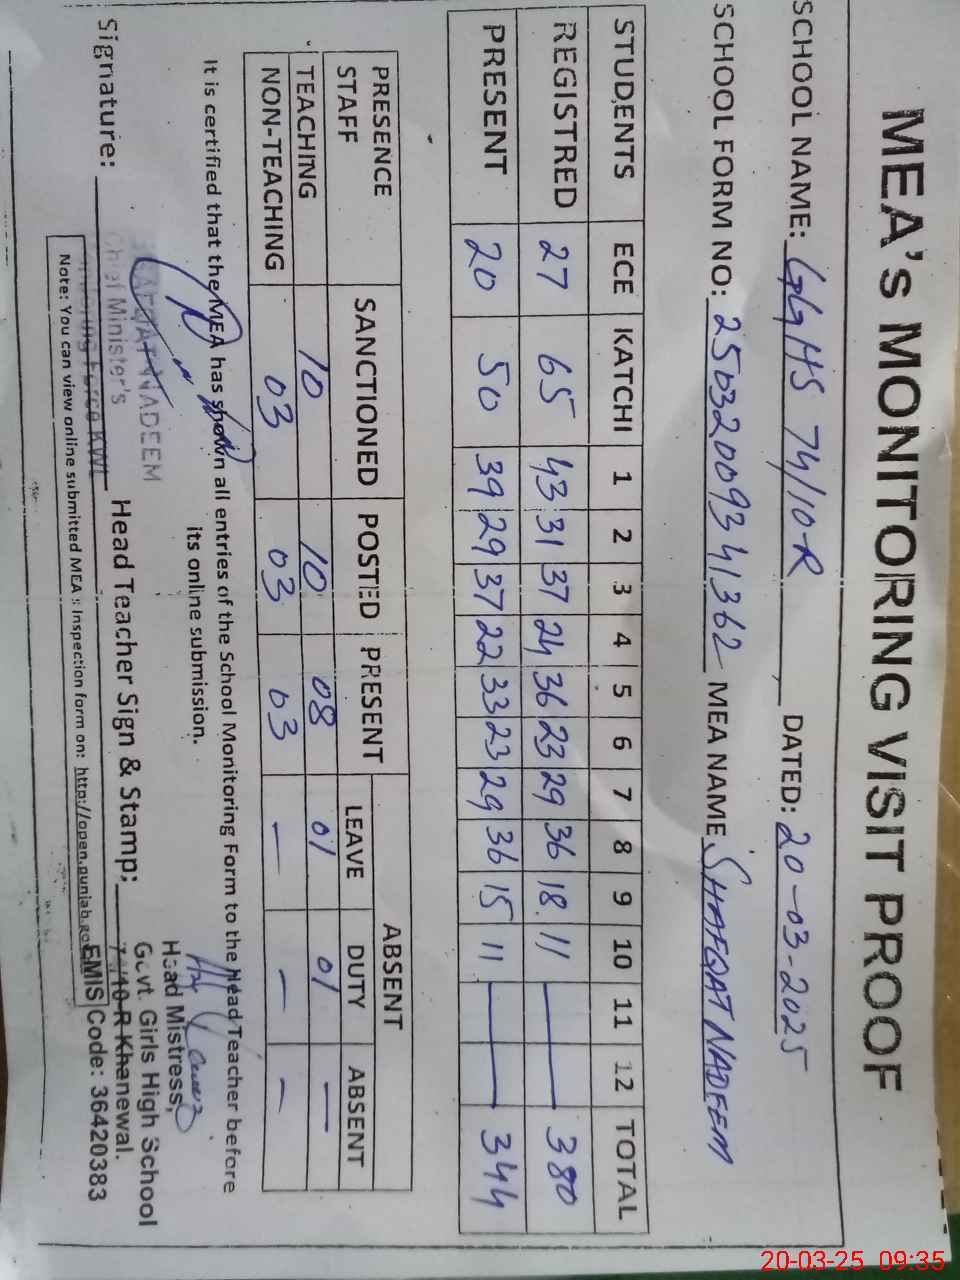 MEA's MONITORING VISIT PROOF
SCHOOL NAME: GGHS 74/10-R DATED: 20-03-2025
SCHOOL FORM NO: 25032009341362 MEA NAME SHAFQAT NADEEM
STUDENTS ECE KATCHI 1 2 3 4 5 6 7 8 9 10 11 12 TOTAL
REGISTRED 27 65 43 31 37 24 36 23 29 36 18 11 — 380
PRESENT 20 50 39 29 37 22 33 23 29 36 15 11 — 344
PRESENCE STAFF SANCTIONED POSTED PRESENT ABSENT
LEAVE DUTY ABSENT
TEACHING 10 10 08 01 01 —
NON-TEACHING 03 03 03 — — —
It is certified that the MEA has shown all entries of the School Monitoring Form to the Head Teacher before
its online submission.
SHAFQAT NADEEM
Chief Minister's
Monitoring Force KWL
Signature: Head Teacher Sign & Stamp:
Head Mistress,
Govt. Girls High School
74/10-R Khanewal.
EMIS Code: 36420383
Note: You can view online submitted MEA's Inspection form on: http://open.punjab.gov
20-03-25 09:35